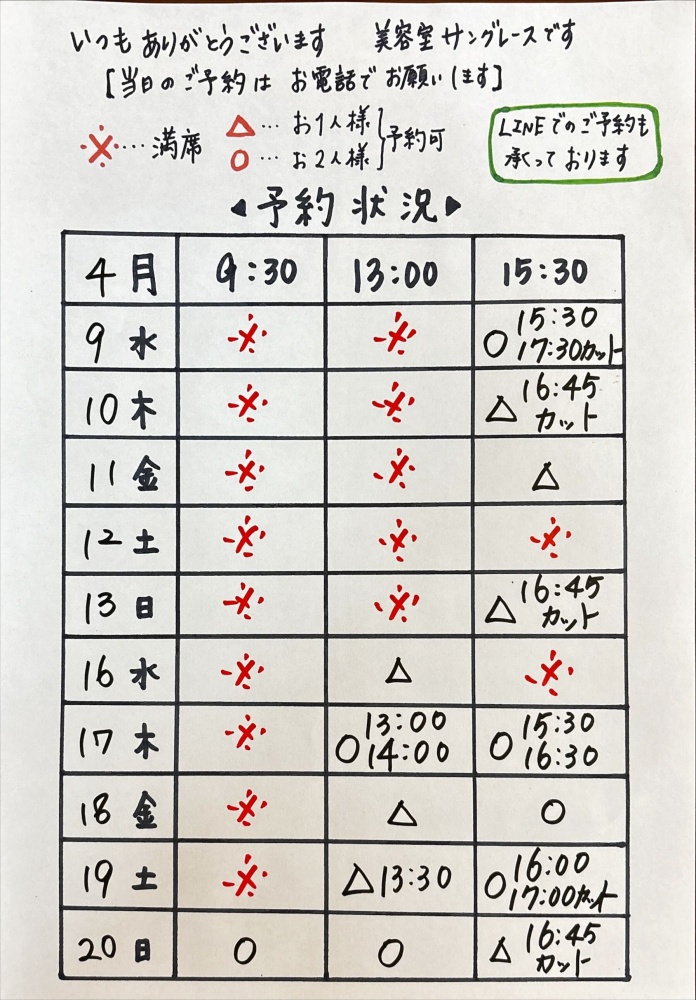 いつもありがとうございます 美容室サングレースです
[当日のご予約は お電話でお願いします]
※…満席
△…お1人様
○…お2人様
予約可
LINEでのご予約も
承っております
◀予約状況▶
4月 9:30 13:00 15:30
9 水 ※ ※ ○ 15:30 17:30カット
10 木 ※ ※ △ 16:45 カット
11 金 ※ ※ △
12 土 ※ ※ ※
13 日 ※ ※ △ 16:45 カット
16 水 ※ △ ※
17 木 ※ ○ 13:00 14:00 ○ 15:30 16:30
18 金 ※ △ ○
19 土 ※ △13:30 ○ 16:00 17:00カット
20 日 ○ ○ △ 16:45 カット